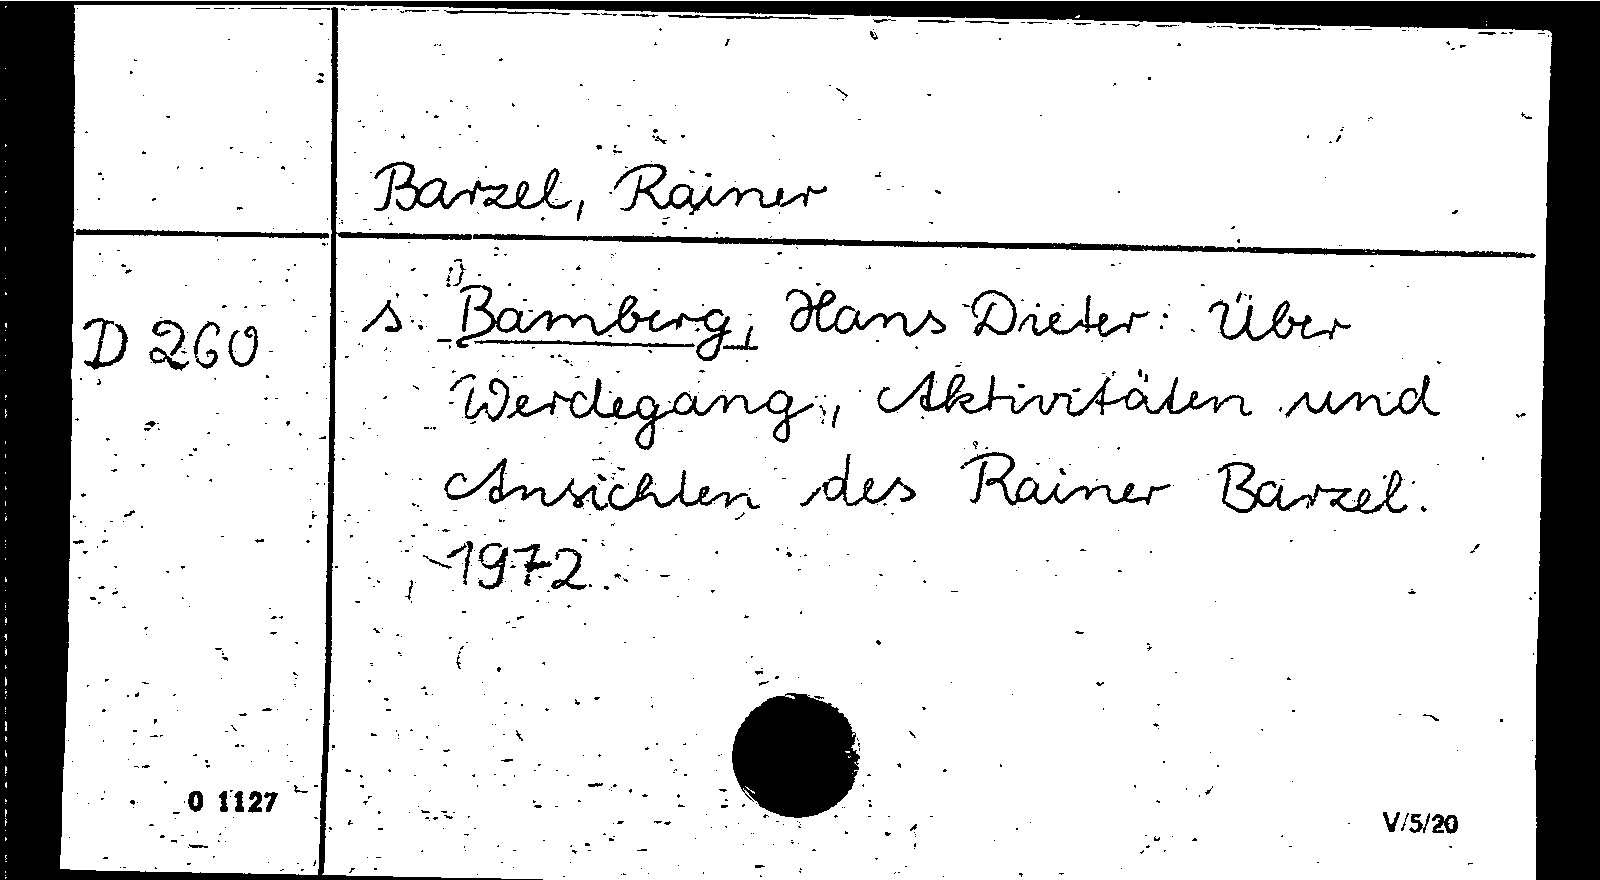 Barzel, Rainer
D 260
s. Bamberg, Hans Dieter: Über
Werdegang, Aktivitäten und
Ansichten des Rainer Barzel.
1972.
O 1127
V/5/20